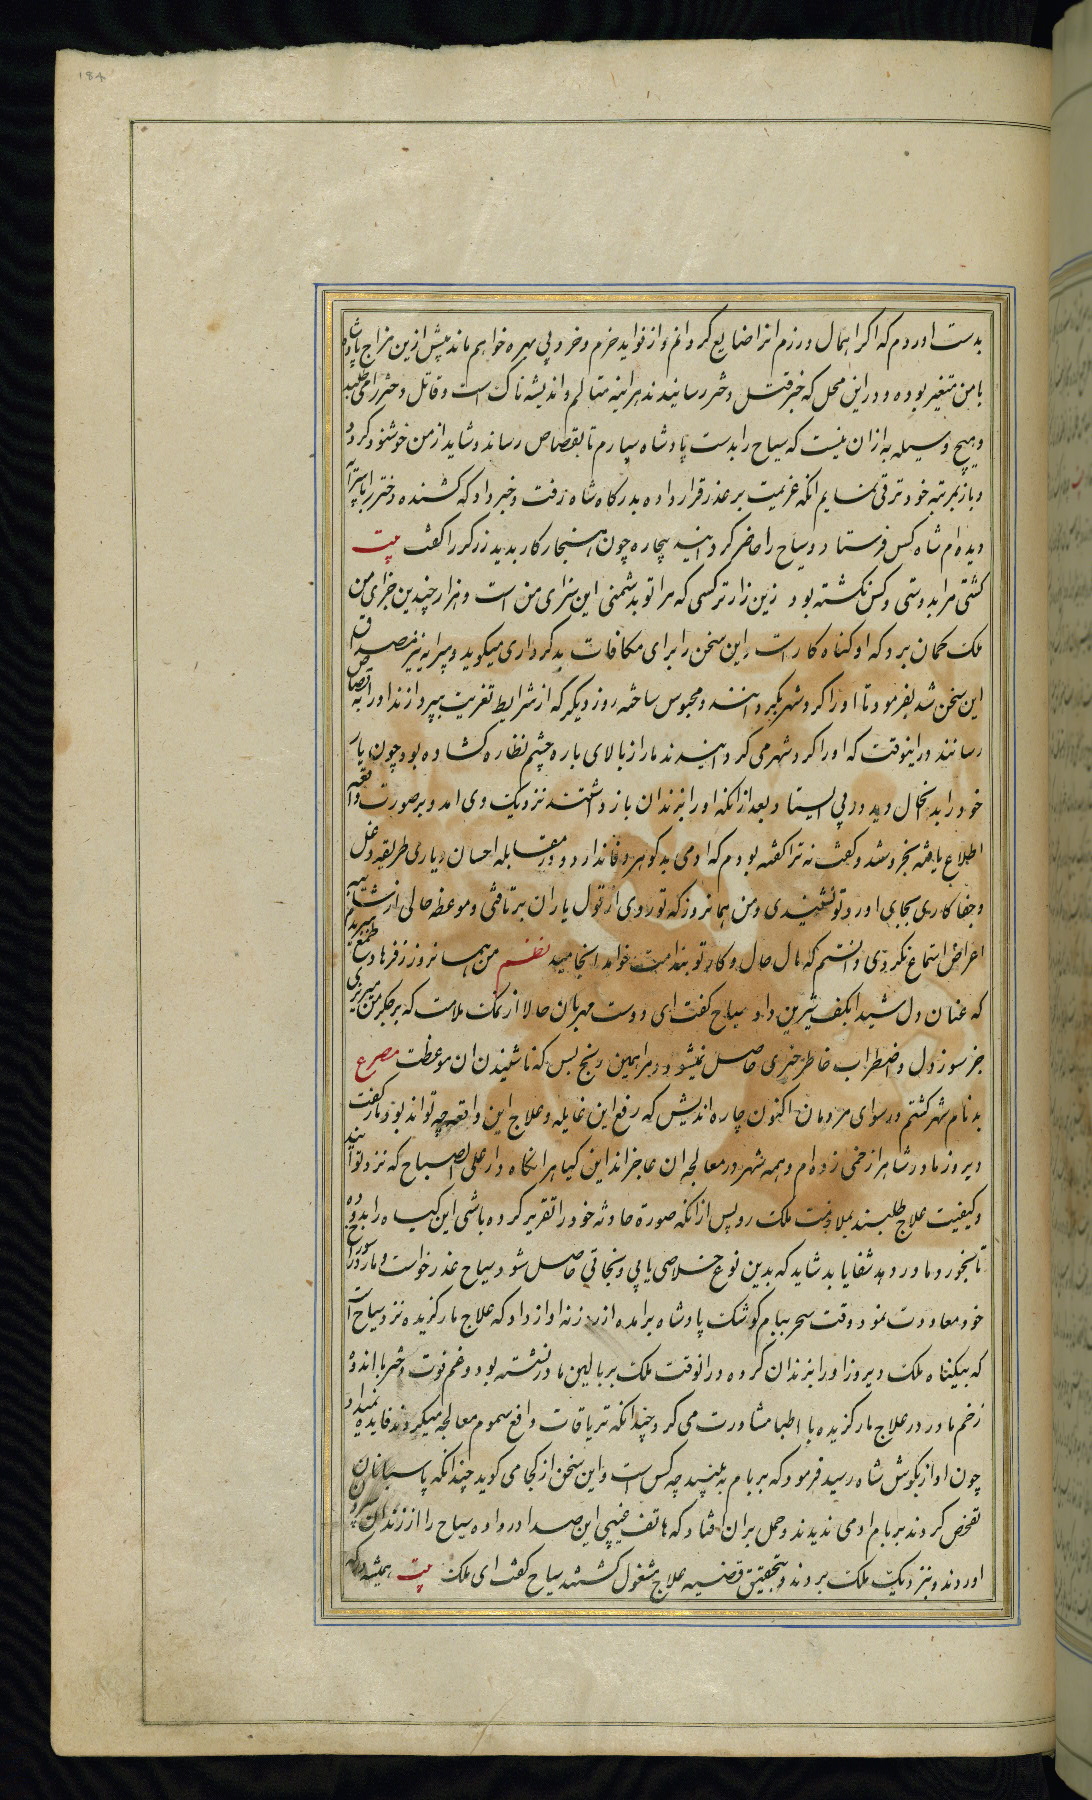 184
بدست اوردم که اکر اهمال ورزم انرا ضایع کردانم و از فواید حزم و خرد بی بهره خواهم ماند پیش ازین مزاج پادشاه
با من متغیر بوده و در این محل که خبر قتل دختر رسانیدند هراینه متالم و اندیشه ناک است و قاتل دختر را می طلبد
و هیچ وسیله به ازان نیست که سیاح را بدست پادشاه سپارم تا بقصاص رساند و شاید از من خوشنود کردد
و باز بمرتبه خود ترقی نمایم انکه عزیمت بر غدر قرار داده بدرکاه شاه رفت و خبر داد که کشنده دختر را با پیرایه
دیده ام شاه کس فرستاد و سیاح را حاضر کردانید بیچاره چون هنجار کار بدید زرکر را کفت بیت
کشتی مرا بدوستی و کس نکشته بود زین زارتر کسی که مرا تو بدشمنی این سزای من است و هزار چندین جزای من
ملک کمان برد که او کناه کار است و این سخن را برای مکافات بدکرداری میکوید و پیرایه نیز مصدق
این سخن شد بفرمود تا او را کرد شهر بکردانند و محبوس ساخته روز دیکر که از شرایط تعزیت بپردازند او را به قصاص
رسانند در اینوقت که او را کرد شهر می کردانیدند مار از بالای باره چشم نظاره کشاده بود چون یار
خود را بدانحال دید در پی ایستاد بعد از انکه او را بزندان باز داشتند نزدیک وی امد و بر صورت واقعه
اطلاع یافته بخروشد و کفت نه ترا کفته بودم که ادمی بدکوهر وفا ندارد و در مقابله احسان و یاری طریقه دغل
و جفاکاری بجای اورد تو نشنیدی و من همانروز که تو روی از قول یاران برتافتی و موعظه خالی از شایبه
اغراض استماع نکردی دانستم که مال حال و کار تو بندامت خواهد انجامید نظم من همانروز ز فرهاد طمع ببریدم
که عنان دل شیدا بکف شیرین داد سیاح کفت ای دوست مهربان حالا از نمک ملامت که بر جکر من میریزی
جز سوز دل و اضطراب خاطر چیزی حاصل نمیشود و مرا همین رنج بس که ناشنیدن ان موعظت مصرع
بدنام شهر کشتم و رسوای مردمان اکنون چاره اندیش که رفع این غایله و علاج این واقعه چه تواند بود مار کفت
دیروز مادر شاه را زخمی زده ام و همه شهر در معالجه ان عاجزاند این کیاه را نکاه دار علی الصباح که نزد تو ایند
و کیفیت علاج طلبند بملازمت ملک رو پس از انکه صورة حادثه خود را تقریر کرده باشی این کیاه را بدو ده
تا بخورد و مادر دهد شفا یابد شاید که بدین نوع خلاصی یابی و نجاتی حاصل شود سیاح عذر خواست و مار
خود معاودت نمود وقت سحر ببام کوشک پادشاه برامده از روزنه اواز داد که علاج مار کزیده نزد سیاح است
که بیکناه ملک دیروز او را بزندان کرده در انوقت ملک بر بالین مادر نشسته بود و غم فوت دختر با اندوه
زخم مادر در علاج مار کزیده با اطبا مشاورت می کرد چندانکه تریاقات دافع سموم معالجه میکردند فایده نمیداد
چون اواز بکوش شاه رسید فرمود که بر بام به بینید چه کس است و این سخن از کجا می کوید چندانکه پاسبانان
تفحص کردند بر بام ادمی ندیدند و حمل بران افتاد که هاتف غیبی این صدا در داده سیاح را از زندان بیرون
اوردند و بنزدیک ملک بردند و بتحقیق قضیه علاج مشغول کشتند سیاح کفت ای ملک بیت همیشه